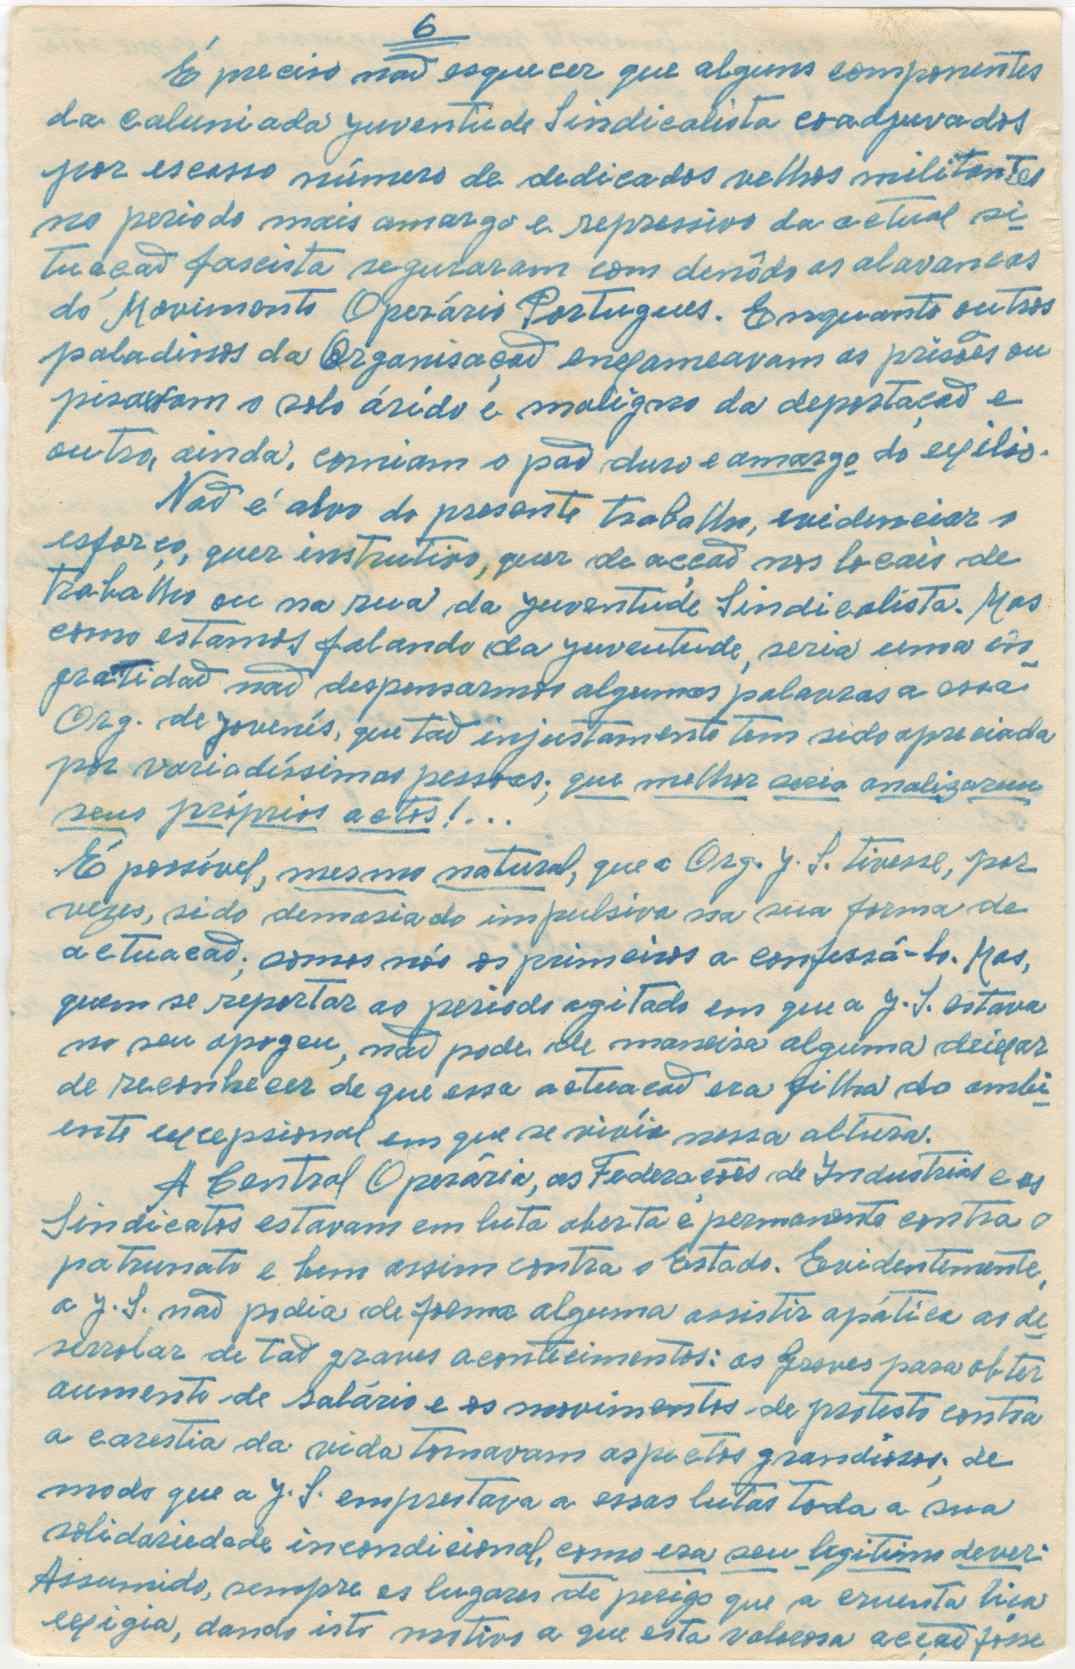 6
É preciso não esquecer que alguns componentes
da caluniada Juventude Sindicalista coadjuvados
por escasso número de dedicados velhos militantes
no periodo mais amargo e repressivo da actual si-
tuação fascista seguraram com denôdo as alavancas
do Movimento Operário Portugues. Enquanto outros
paladinos da Organisação enxameavam as prisões ou
pisavam o solo árido e maligno da deportação e
outro, ainda, comiam o pão duro e amargo do exilio.
Não é alvo do presente trabalho, evidenciar o
esforço, quer instrutivo, quer de acção nos locais de
trabalho ou na rua da Juventude Sindicalista. Mas
como estamos falando da Juventude, seria uma in-
gratidão não despensarmos algumas palavras a essa
Org. de Jovenís, que tão injustamente tem sido apreciada
por variadíssimas pessoas; que melhor seria analizarem
seus próprios actos!...
É possível, mesmo natural, que a Org. J. S. tivesse, por
vezes, sido demasiado impulsiva na sua forma de
actuacão; somos nós os primeiros a confessá-lo. Mas,
quem se reportar ao periodo agitado em que a J. S. estava
no seu apogeu, não pode de maneira alguma deixar
de reconhecer de que essa actuacão era filha do ambi-
ente excepsional em que se vivia nessa altura.
A Central Operária, as Federações de Industrias e os
Sindicatos estavam em luta aberta e permanente contra o
patrunato e bem assim contra o Estado. Evidentemente,
a J. S. não podia de forma alguma assistir apática ao de-
serrolar de tão graves acontecimentos: as Greves para obter
aumento de salário e os movimentos de protesto contra
a carestia da vida tomavam aspectos grandiosos; de
modo que a J. S. emprestava a essas lutas toda a sua
solidariedade incondicional, como era seu legitimo dever.
Assumido, sempre os lugares de perigo que a cruenta liça
exigia, dando isto motivo a que esta valorosa acção fosse